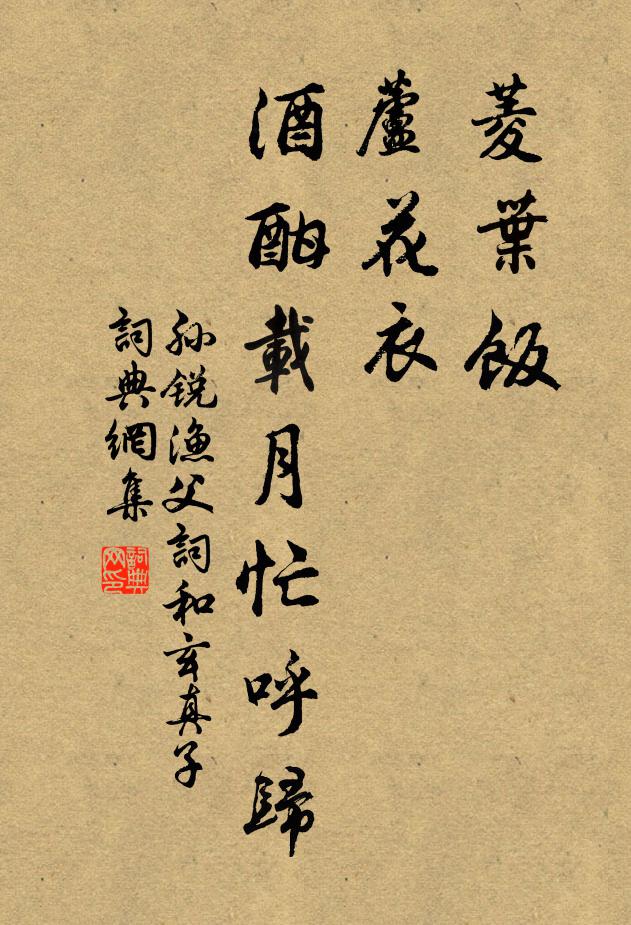 菱葉飯
蘆花衣
酒酣載月忙呼歸
孫鋭漁父詞和玄真子
詞典網集
詞典
网印